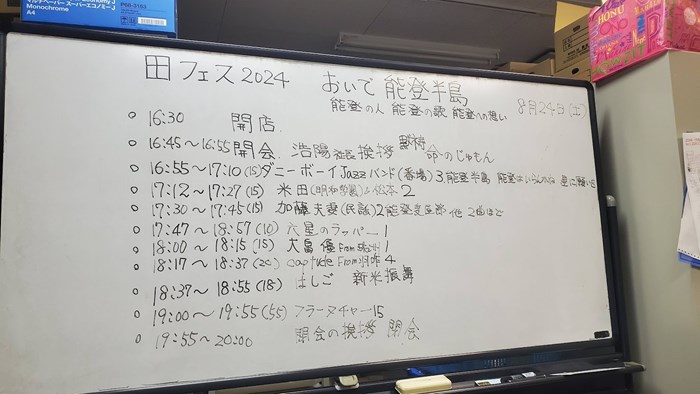 Monochrome
A4
田フェス2024 おいで 能登半島
能登の人 能登の歌 能登への想い 8月24日(土)
16:30 開店
16:45～16:55 開会 浩陽 挨拶 命のじゅもん
16:55～17:10(15)ダニーボーイJazzバンド(斉場)3,能登半島 能登はいらんかいね 星に願いを
17:12～17:27(15) 米田 2
17:30～17:45(15) 加藤夫妻(民謡)2能登麦屋節 他 2曲ほど
17:47～18:57(10) 六星のラッパー1
18:00～18:15(15) 大畠 優 From 1
18:17～18:37(20) From羽咋 4
18:37～18:55(18) はしご 新米振舞
19:00～19:55(55) フラーヌチャー15
19:55～20:00 閉会の挨拶 閉会